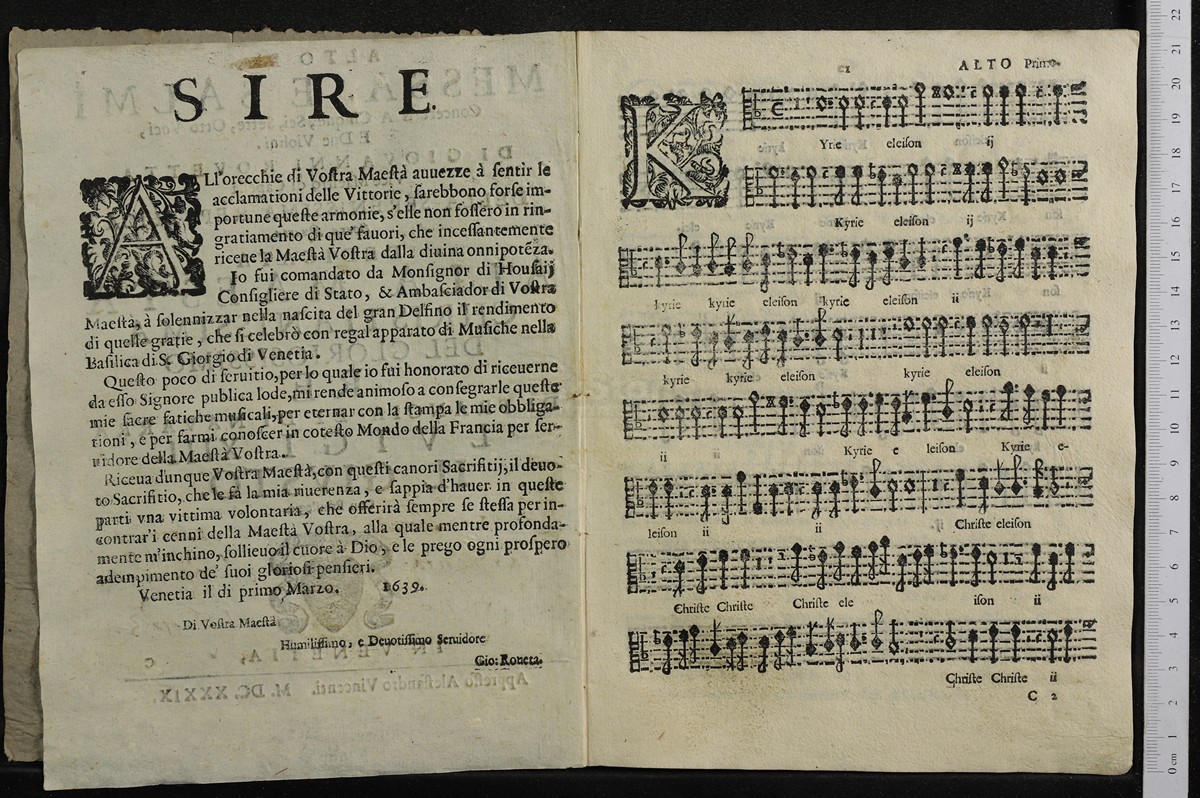 SIRE.
ALl'orecchie di Vostra Maestà auuezze à sentir le
acclamationi delle Vittorie, sarebbono forse im-
portune queste armonie, s'elle non fossero in rin-
gratiamento di que' fauori, che incessantemente
riceue la Maestà Vostra dalla diuina onnipotẽza.
Io fui comandato da Monsignor di Houssaij
Consigliere di Stato, & Ambasciador di Vostra
Maestà, à solennizzar nella nascita del gran Delfino il rendimento
di quelle gratie, che si celebrò con regal apparato di Musiche nella
Basilica di S. Giorgio di Venetia.
Questo poco di seruitio, per lo quale io fui honorato di riceuerne
da esso Signore publica lode, mi rende animoso a consegrarle queste
mie sacre fatiche musicali, per eternar con la stampa le mie obbliga-
tioni, e per farmi conoscer in cotesto Mondo della Francia per ser-
uidore della Maestà Vostra.
Riceua dunque Vostra Maestà, con questi canori Sacrifitij, il deuo-
to Sacrifitio, che le fà la mia riuerenza, e sappia d'hauer in queste
parti vna vittima volontaria, che offerirà sempre se stessa per in-
contrar'i cenni della Maestà Vostra, alla quale mentre profonda-
mente m'inchino, solleuo il cuore à Dio, e le prego ogni prospero
adempimento de' suoi gloriosi pensieri.
Venetia il di primo Marzo. 1639.
Di Vostra Maestà
Humilissimo, e Deuotissimo Seruidore
Gio: Roueta.
ALTO Primo.
KYrie eleison ij
Kyrie eleison ij
kyrie kyrie eleison kyrie eleison ii
kyrie kyrie eleison kyrie eleison
ii ii Kyrie e leison Kyrie e-
leison ii ii Christe eleison
Christe Christe Christe ele ison ii
Christe Christe ii
C 2